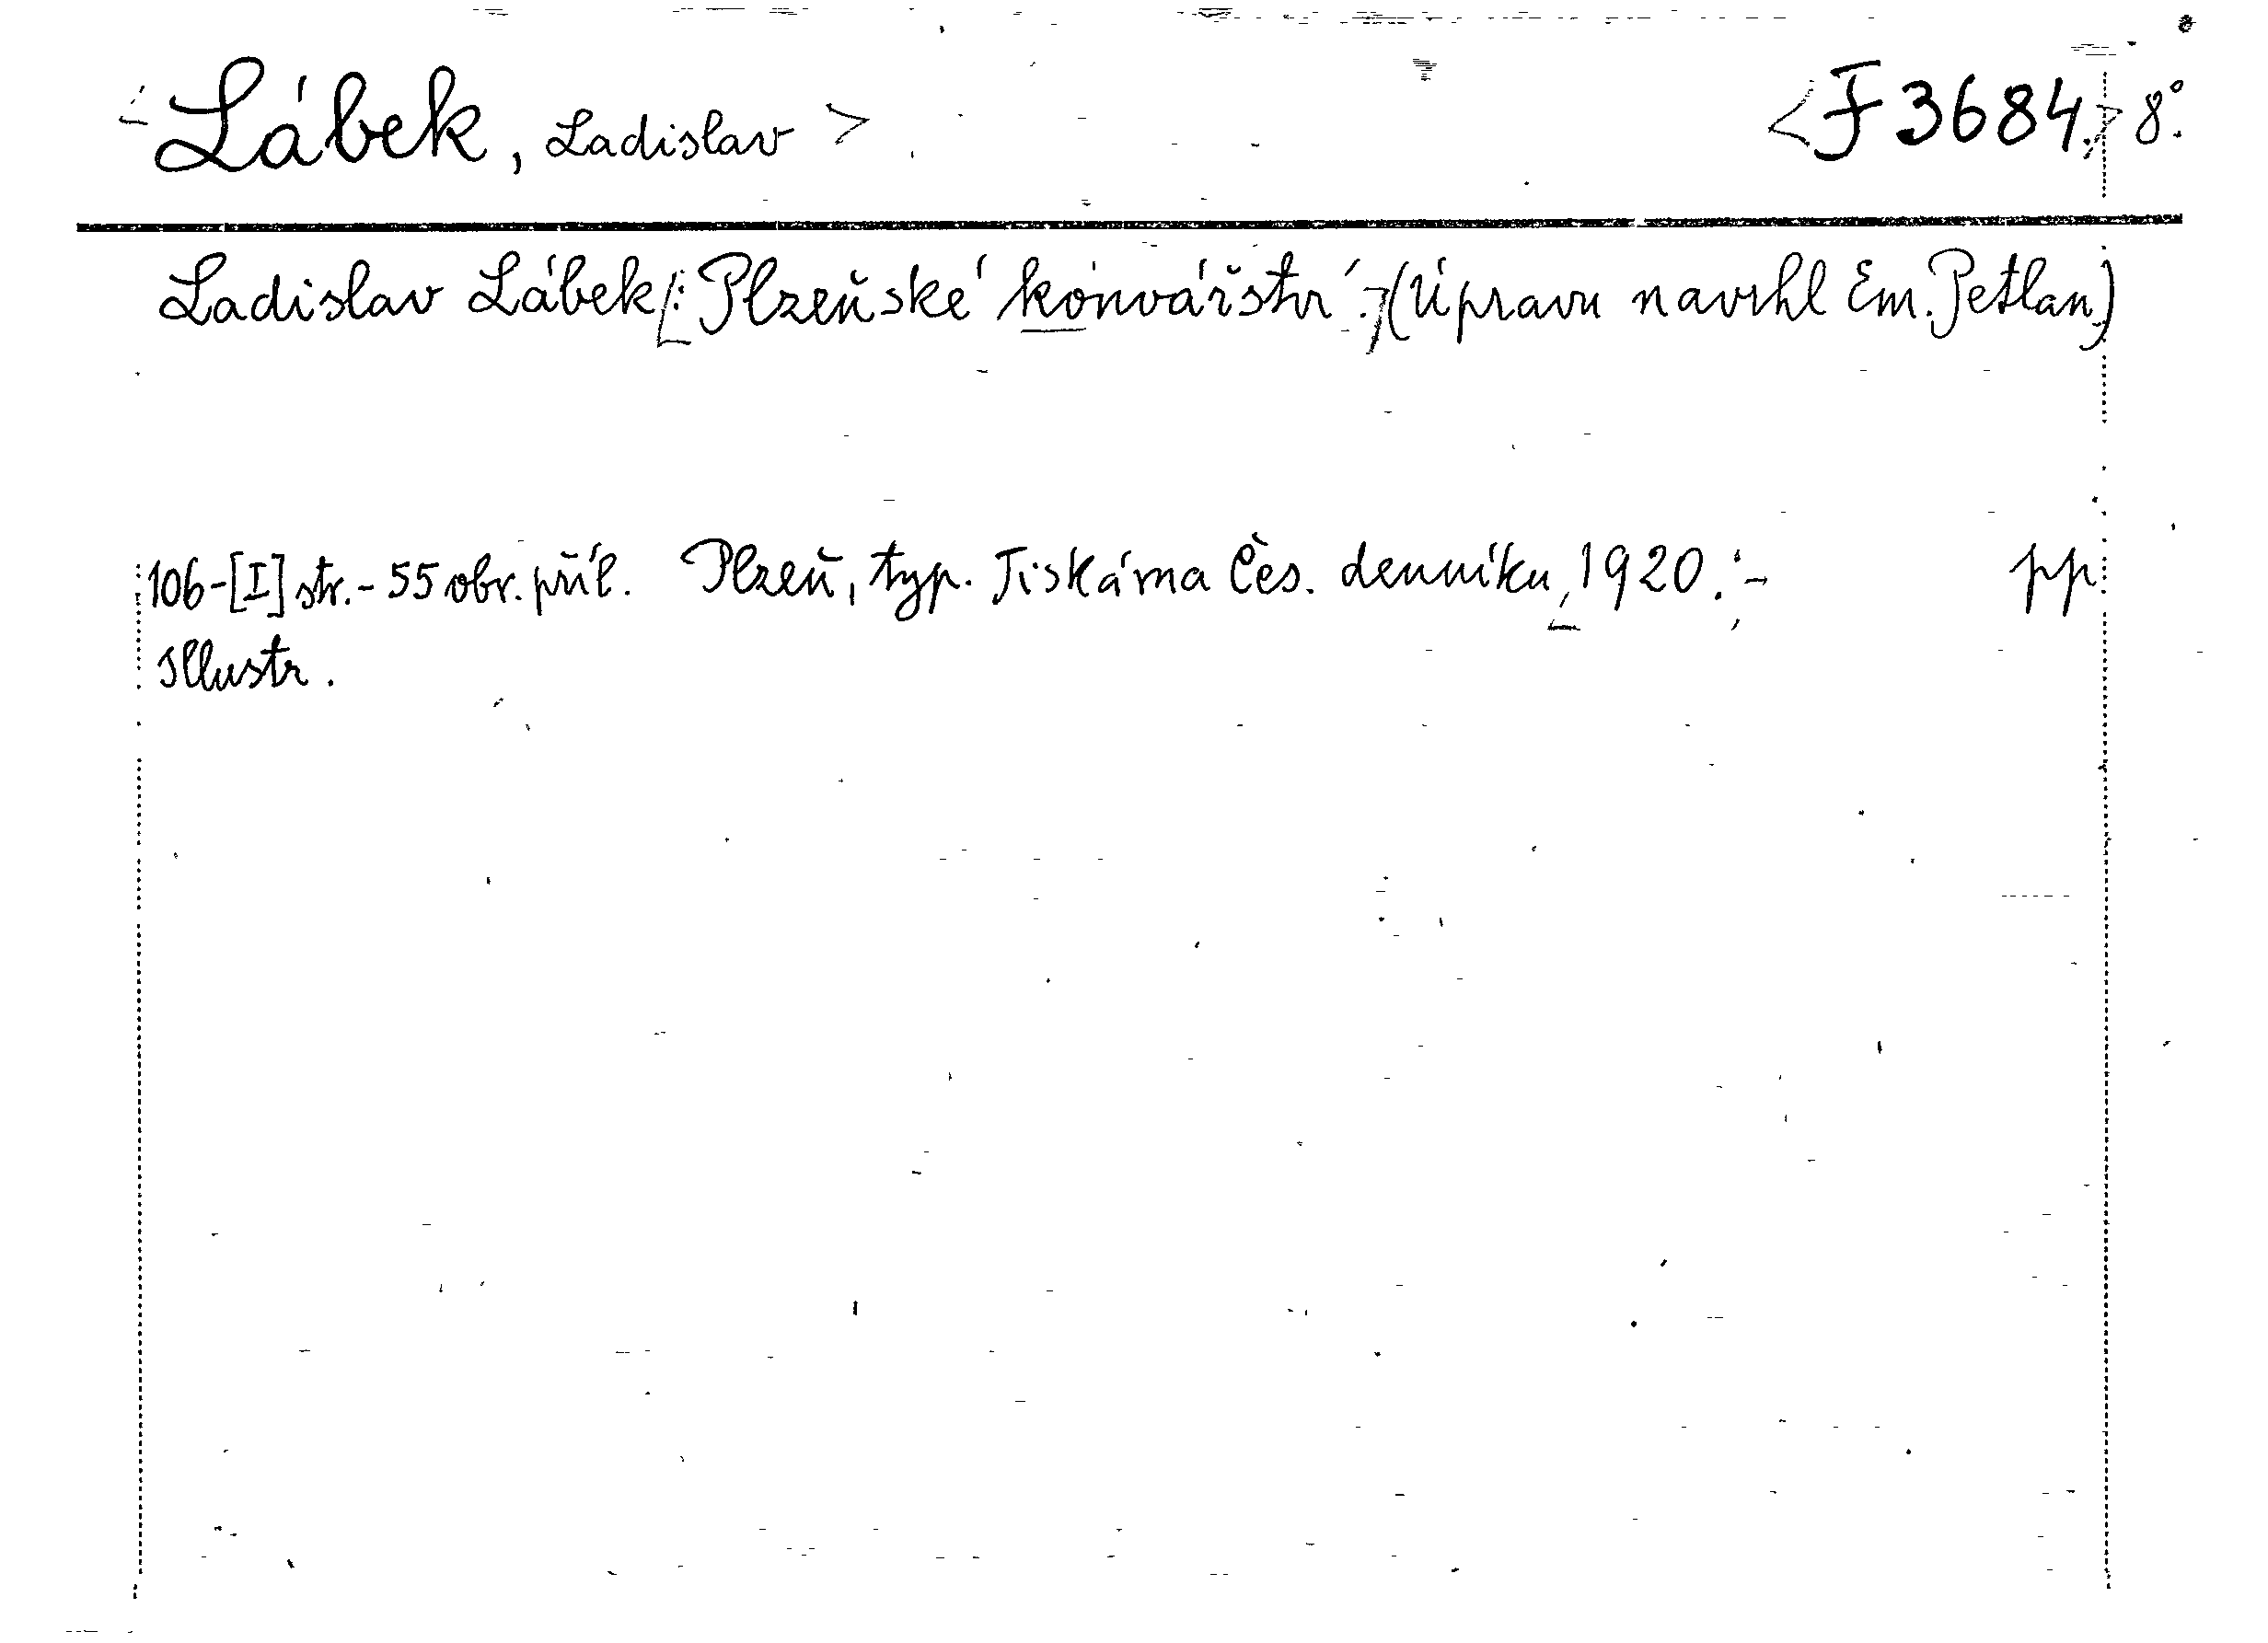 <Lábek, Ladislav> <F 3684.> 8°.
Ladislav Lábek[: Plzeňské konvářství.] (Úpravu navrhl Em. Petlan.)
106-[I] str.- 55 obr. příl. Plzeň, typ. Tiskárna Čes. denníku, 1920. :- pp
Illustr.